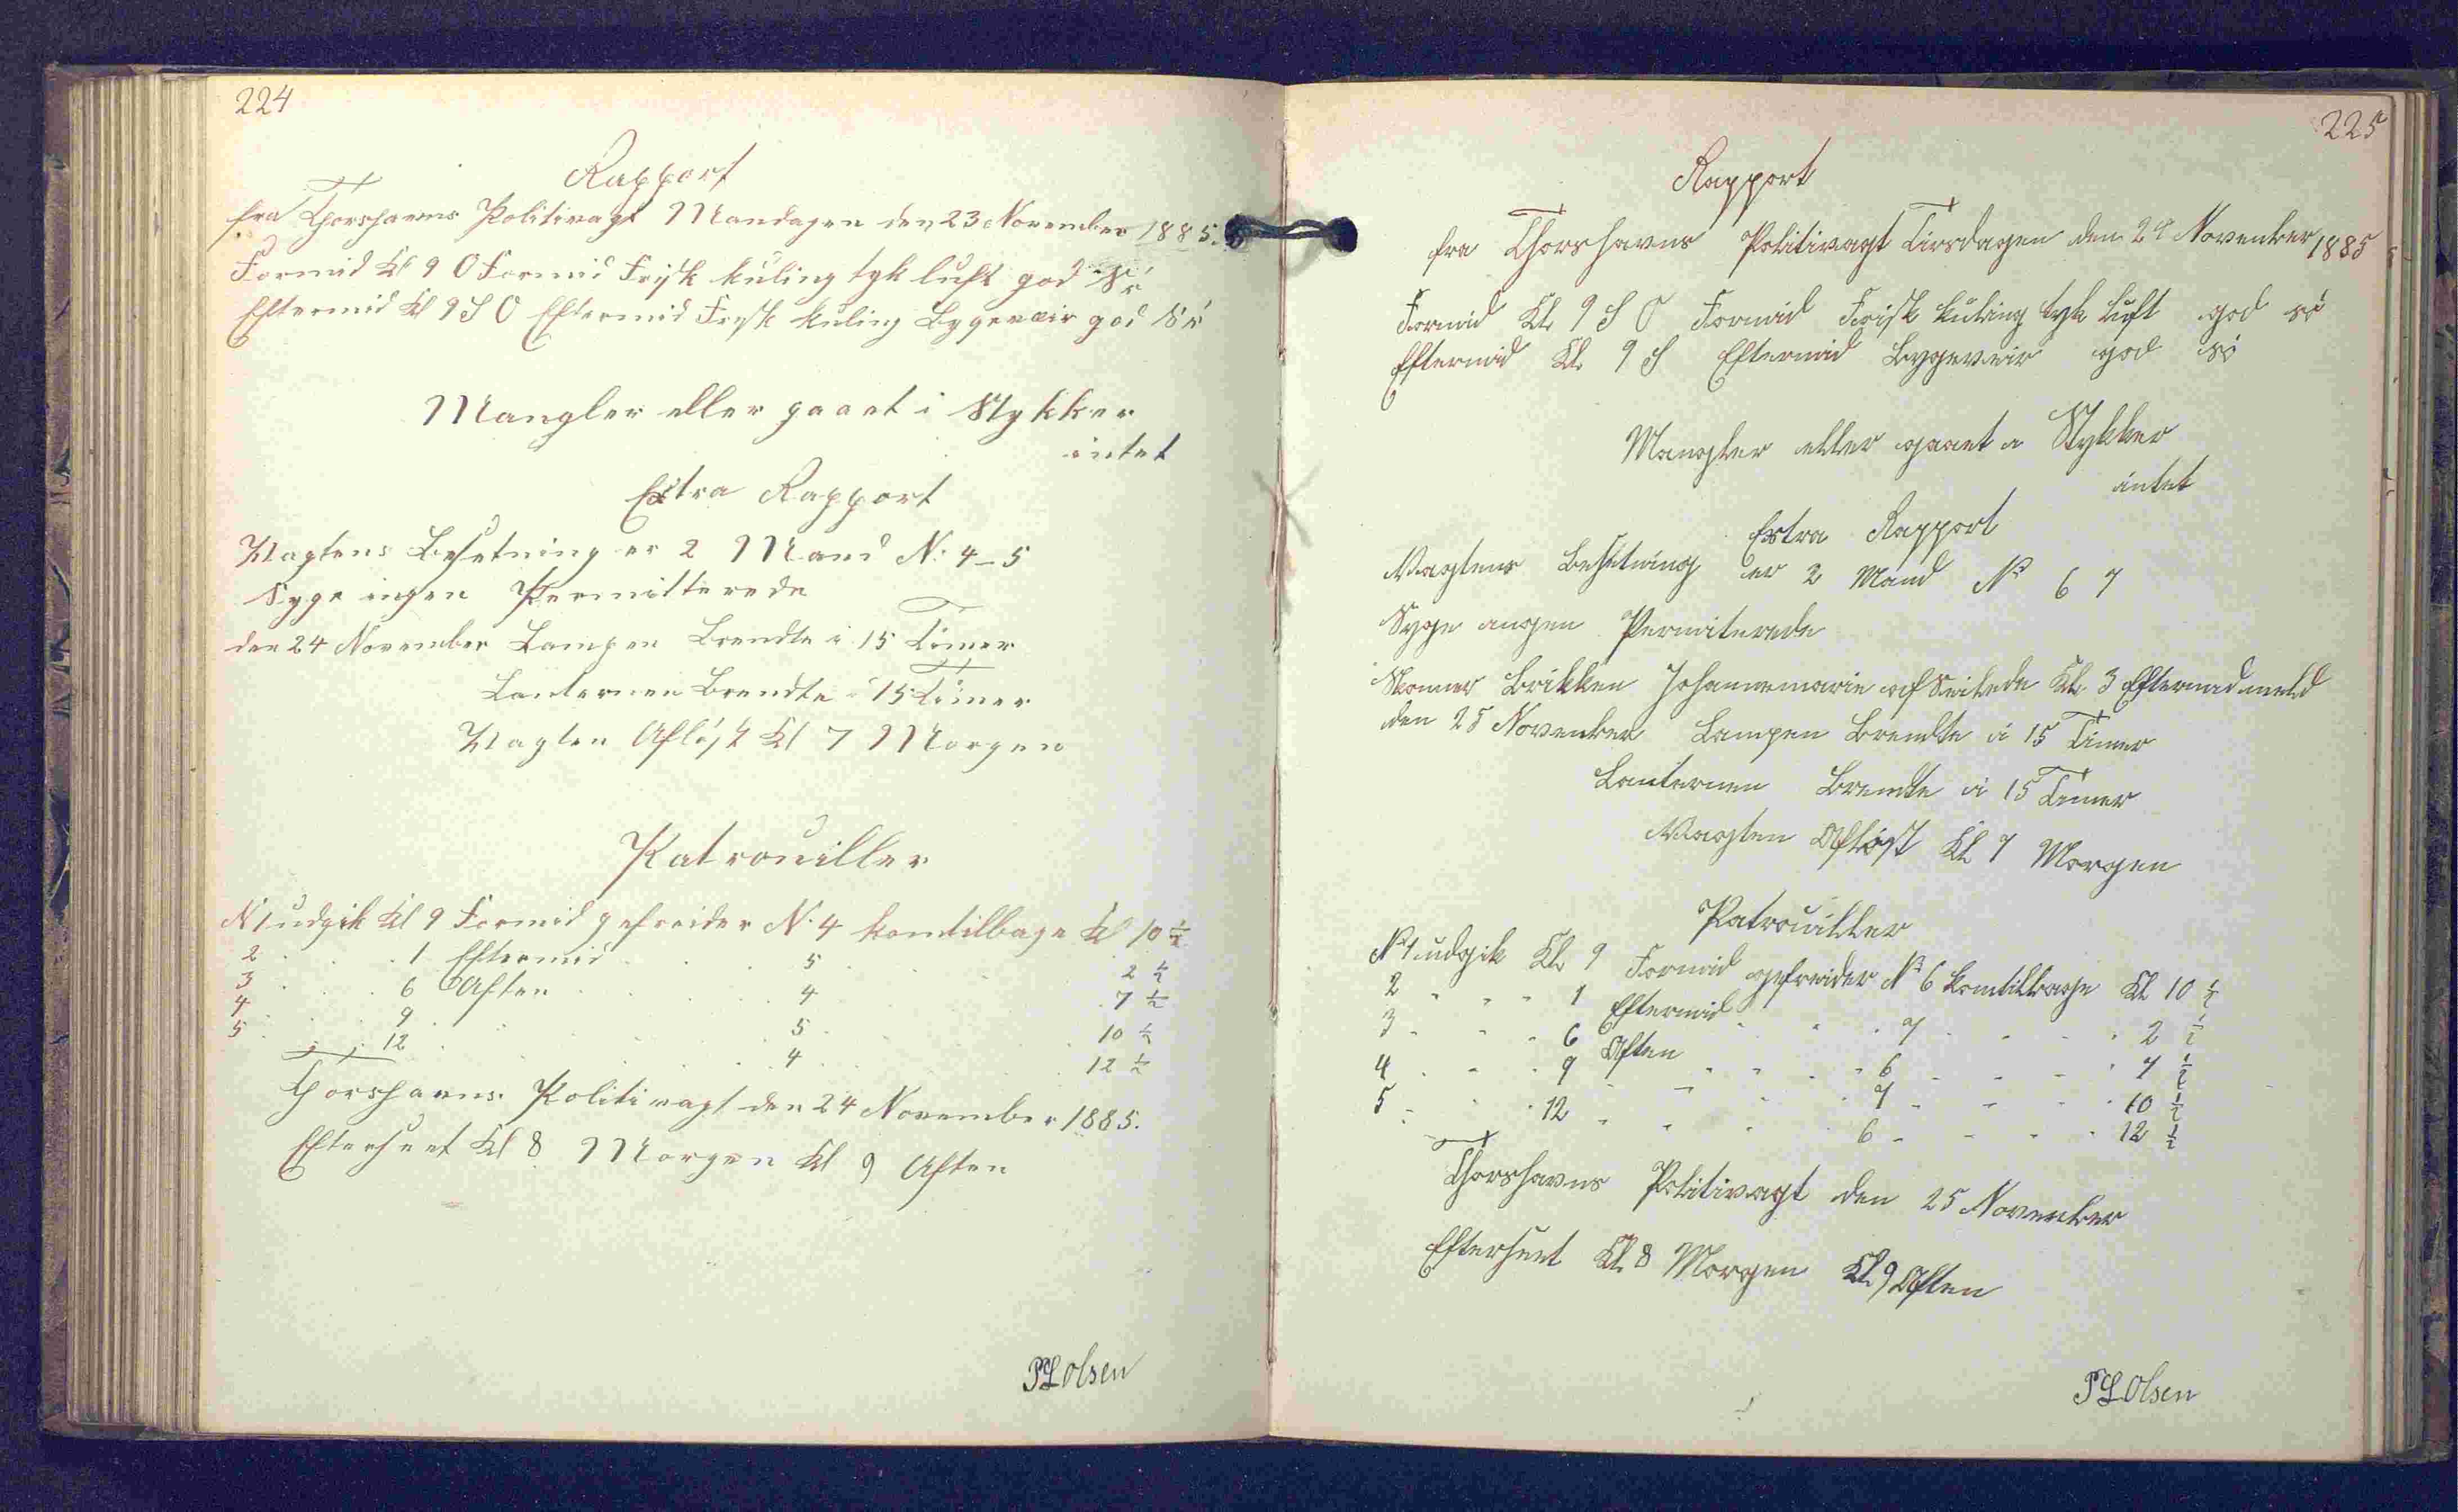 224
Rapport
fra Thorshavns Politivagt Mandagen den 23 November 1885.
Formid Kl 9 O Formid Frisk kuling tyk luft god Sö
Eftermid Kl 9 S O Eftermid Frisk kuling Bygeveir god Sö
Mangler eller gaaet i Stykker
intet
Extra Rapport
Vagtens Besetning er 2 Mand N. 4-5
Syge ingen Permitterede
den 24 November Lampen Brendte i 15 Timer
Lanternen Brendte i 15 Timer
Vagten Afløst Kl 7 Morgen
Patrouiller
N 1 udgik Kl 9 Formid gefreider N. 4 kom tilbage Kl 10 ½
2 . . . 1 Eftermid . . . 5 . . . 2 ½
3 . . . 6 Aften . . . 4 . . . 7 ½
4 . . . 9 . . . 5 . . . 10 ½
5 . . . 12 . . . 4 . . . 12 ½
Thorshavns Politivagt den 24 November 1885.
Efterseet Kl 8 Morgen Kl 9 Aften
PL Olsen
225
Rapport
fra Thorshavns Politivagt Tirsdagen den 24 November 1885
Formid Kl. 9 S O Formid Frisk kuling tyk luft god sö
Eftermid Kl. 9 S Eftermid Bygeveir god sö
Mangler eller gaaet i Stykker
intet
Extra Rapport
Vagtens Besetning er 2 Mand No 6 7
Syge ingen Permiterede
Skonner Brikken Johannemarie afseilede Kl. 3 Eftermid meld
den 25 November Lampen Brendte i 15 Timer
Lanternen Brendte i 15 Timer
Vagten Afløst Kl 7 Morgen
Patrouiller
No 1 udgik Kl. 9 Formid gefreider No 6 kom tilbage Kl 10 ½
2 . . . 1 Eftermid . . . 7 . . . 2 ½
3 . . . 6 Aften . . . 6 . . . 7 ½
4 . . . 9 . . . 7 . . . 10 ½
5 . . . 12 . . . 6 . . . 12 ½
Thorshavns Politivagt den 25 November
Efterseet Kl. 8 Morgen Kl. 9 Aften
PL Olsen